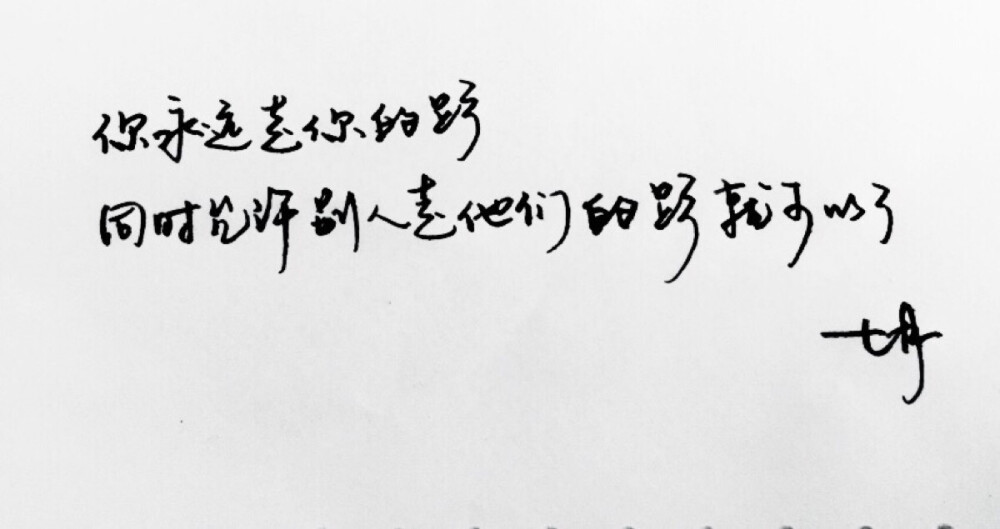 你永远走你的路
同时允许别人走他们的路就可以了
七月